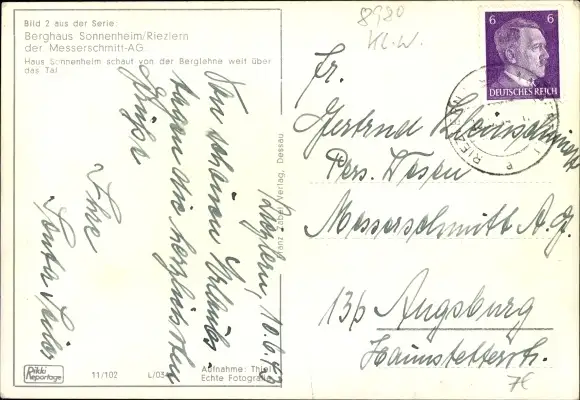 Bild 2 aus der Serie:
Berghaus Sonnenheim/Riezlern
der Messerschmitt-AG.
Haus Sonnenheim schaut von der Berglehne weit über
das Tal
8920
Kl.W.
6 6
DEUTSCHES REICH
RIEZLERN
Riezlern, 10.6.43
Von schönen Urlaubs-
tagen die herzlichsten
Grüße
Ihre
Fr.
Gertrud
Pers. Wesen
Messerschmitt A.G.
136 Augsburg
Haunstetterstr.
7€
Verlag, Dessau
Rikki
Reportage
11/102
L/034
Aufnahme: Thiel
Echte Fotografie